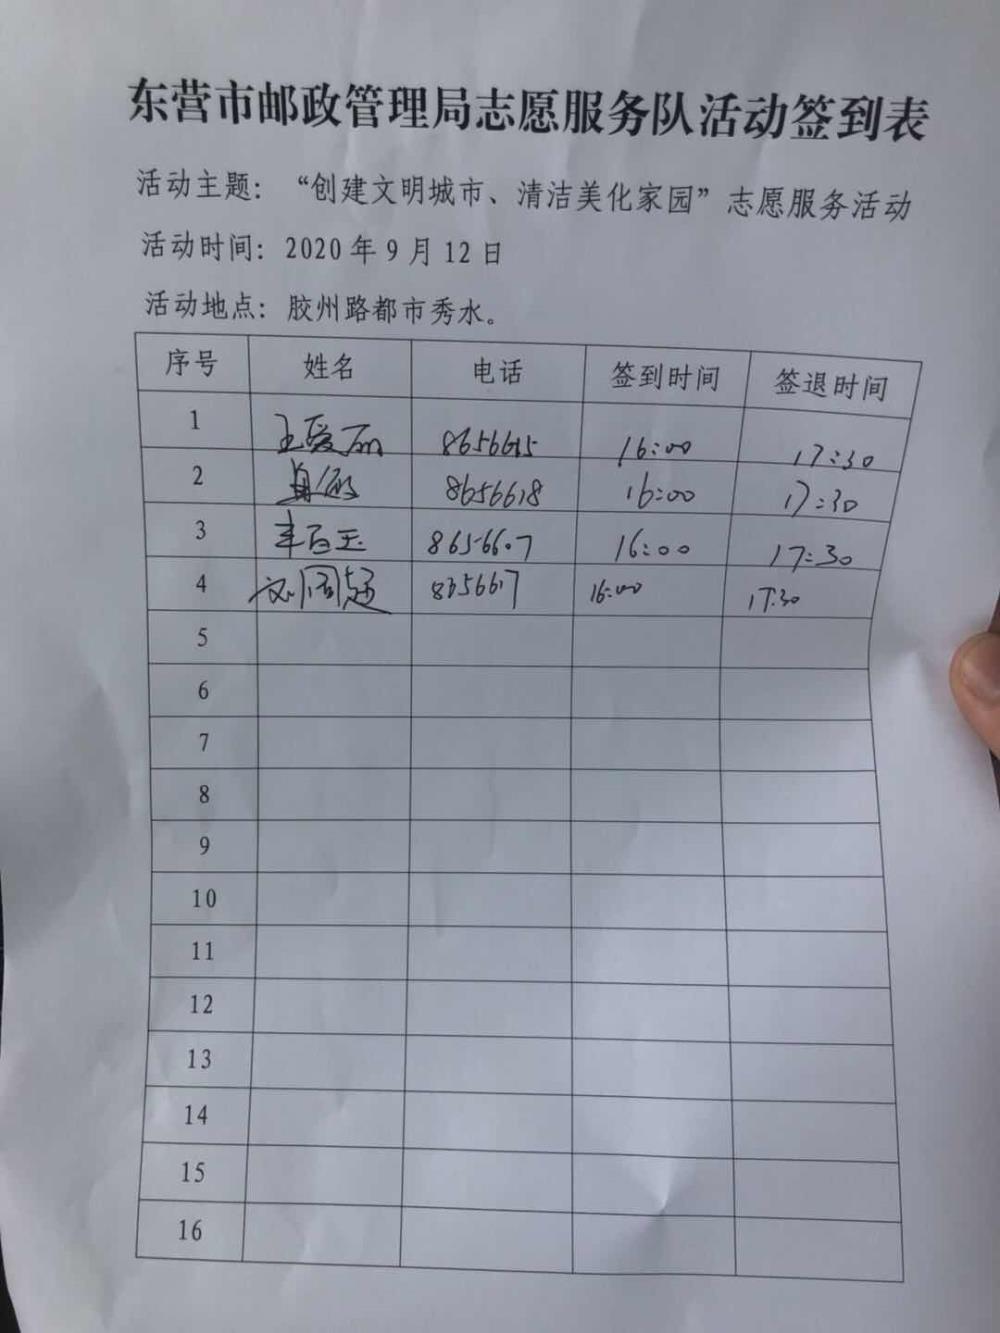 东营市邮政管理局志愿服务队活动签到表
活动主题：“创建文明城市、清洁美化家园”志愿服务活动
活动时间：2020年9月12日
活动地点：胶州路都市秀水。
序号 姓名 电话 签到时间 签退时间
1 王爱丽 8656615 16:00 17:30
2 8656618 16:00 17:30
3 8656607 16:00 17:30
4 8656617 16:00 17:30
5
6
7
8
9
10
11
12
13
14
15
16